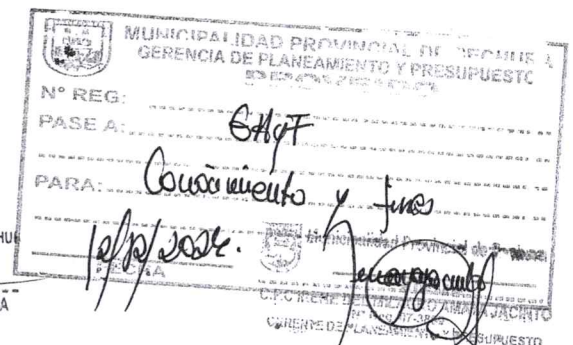 MUNICIPALIDAD PROVINCIAL DE
GERENCIA DE PLANEAMIENTO Y PRESUPUESTO
N° REG:
PASE A: GAyF
PARA: Conocimiento y fines
12/12/2024.
Municipalidad Provincial de
C.P.C IRENE JACINTO
GERENTE DE PLANEAMIENTO Y PRESUPUESTO